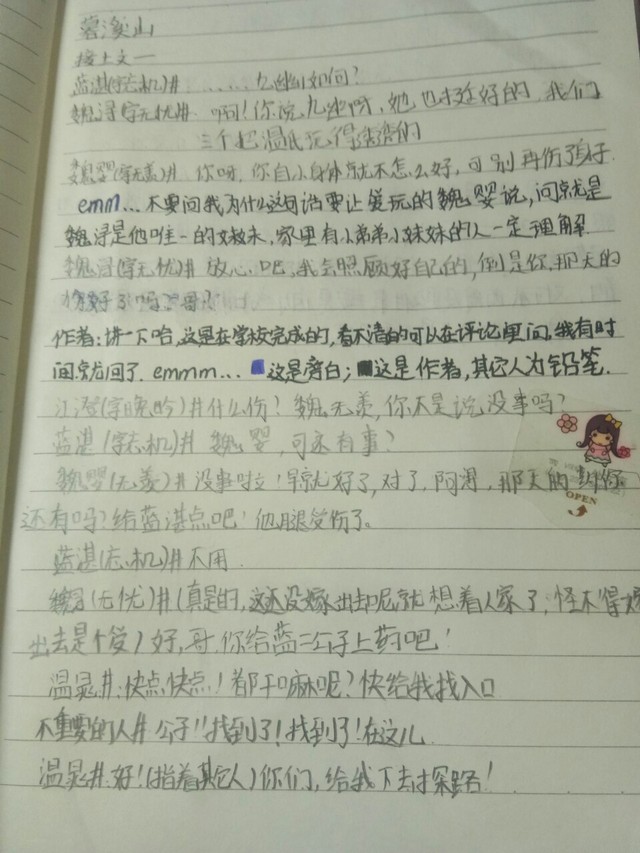 暮溪山
接上文一
蓝湛(字忘机)#……九幽如何?
魏浔(字无忧)# 啊!你说九幽呀,她也挺好的,我们
三个把温氏玩得溜溜的
魏婴(字无羡)# 你呀,你自小身体就不怎么好,可别再伤了身子
emm...不要问我为什么这句话要让爱玩的魏婴说,问就是
魏浔是他唯一的妹妹,家里有小弟弟小妹妹的人一定理解
魏浔(字无忧)# 放心吧,我会照顾好自己的,倒是你,那天的
伤好了吗?哥?
作者:讲一下哈,这是在学校完成的,看不清的可以在评论里问,我有时
间就回了.emmm... 这是旁白; 这是作者,其它人为铅笔.
江澄(字晚吟)#什么伤?魏无羡,你不是说没事吗?
蓝湛(字忘机)# 魏婴,可还有事?
魏婴(无羡)# 没事啦!早就好了,对了,阿浔,那天的
还有吗?给蓝湛点吧!他腿受伤了。
OPEN
蓝湛(忘机)#不用
魏浔(无忧)#(真是的,这还没嫁出去呢就想着人家了,怪不得嫁
出去是个受)好,哥,你给蓝二公子上药吧!
温晁#:快点快点!都干嘛呢?快给我找入口
不重要的人#公子!!找到了!找到了!在这儿
温晁#:好!(指着其它人)你们,给我下去探路!